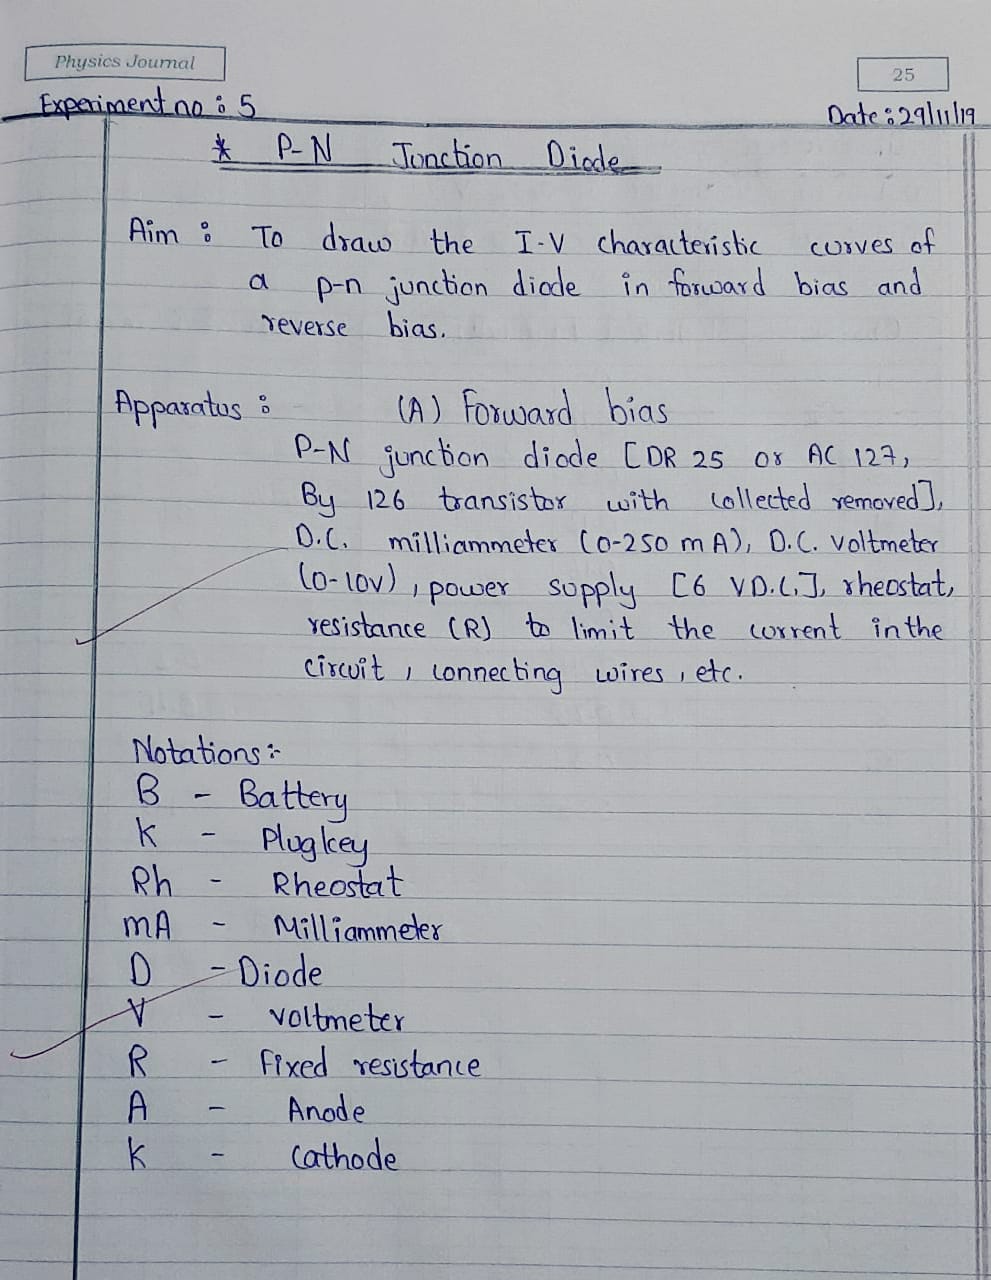 Physics Journal
25
Experiment no : 5
Date : 29/11/19
* P-N Junction Diode
Aim : To draw the I-V characteristic curves of
a p-n junction diode in forward bias and
reverse bias.
Apparatus : (A) Forward bias
P-N junction diode [DR 25 or AC 127,
By 126 transistor with collected removed],
D.C. milliammeter (0-250 mA), D.C. voltmeter
(0-10V), power supply [6 V D.C.], rheostat,
resistance (R) to limit the current in the
circuit, connecting wires, etc.
Notations :-
B - Battery
K - Plug key
Rh - Rheostat
mA - Milliammeter
D - Diode
V - voltmeter
R - Fixed resistance
A - Anode
K - Cathode